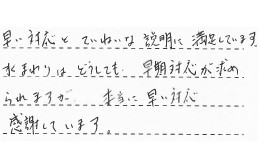 早い対応とていねいな説明に満足しています。
水まわりはどうしても、早期対応が求め
られますが、本当に早い対応
感謝しています。